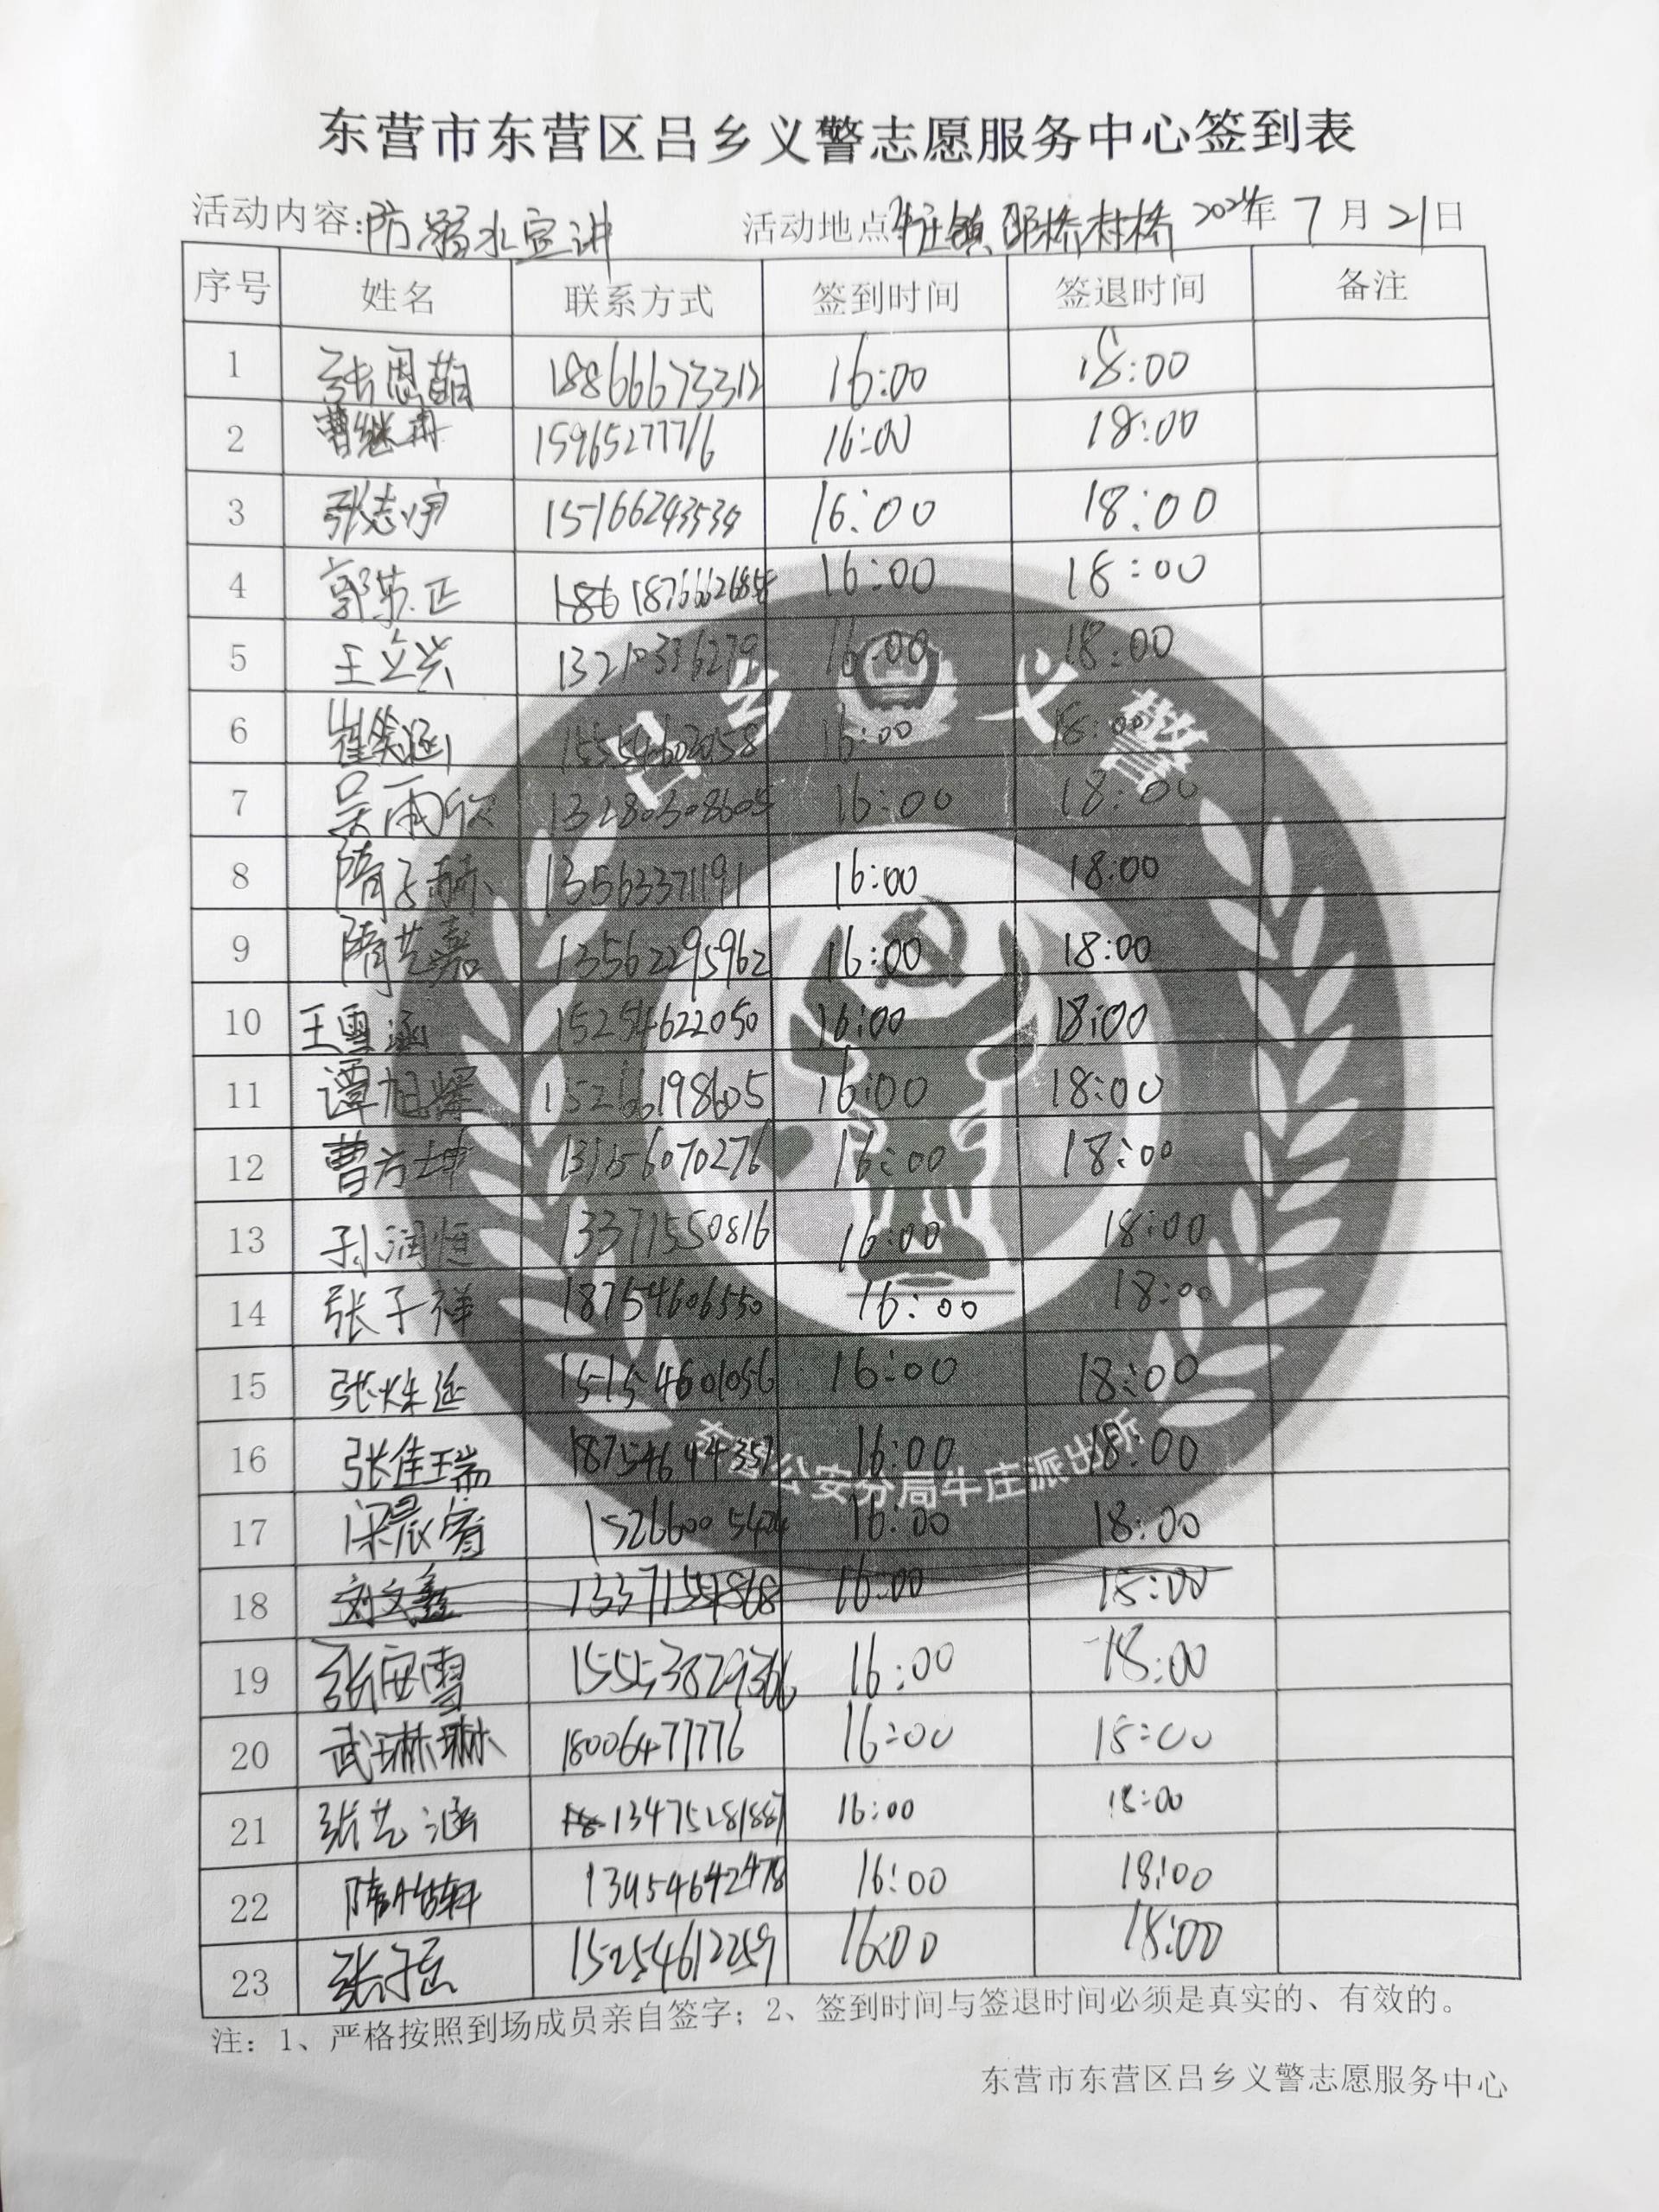 东营市东营区吕乡义警志愿服务中心签到表
活动内容:防溺水宣讲 活动地点 牛庄镇 邵桥村桥 2024年 7月21日
序号 姓名 联系方式 签到时间 签退时间 备注
1 张恩萌 18866673312 16:00 18:00
2 曹继冉 15965277716 16:00 18:00
3 张志宇 15166243534 16:00 18:00
4 18766626858 16:00 18:00
5 王立兴 13210336279 16:00 18:00
6 崔笑涵 15554602058 16:00 18:00
7 吴雨欣 13280308605 16:00 18:00
8 隋子赫 13563371191 16:00 18:00
9 隋艺嘉 13562295962 16:00 18:00
10 王雪涵 15254622050 16:00 18:00
11 谭旭耀 15266198605 16:00 18:00
12 曹方坤 13156070276 16:00 18:00
13 孙润恒 13371550816 16:00 18:00
14 张子祥 18754606550 16:00 18:00
15 张烁延 15154601056 16:00 18:00
16 张佳瑞 18754644357 16:00 18:00
17 梁宸睿 15266005424 16:00 18:00
18 刘文鑫 16:00 18:00
19 张安雪 16:00 18:00
20 武琳琳 18006477776 16:00 18:00
21 张艺涵 13475281887 16:00 18:00
22 隋怡轩 13954642478 16:00 18:00
23 15254612259 16:00 18:00
吕乡义警
东营公安分局牛庄派出所
注：1、严格按照到场成员亲自签字；2、签到时间与签退时间必须是真实的、有效的。
东营市东营区吕乡义警志愿服务中心